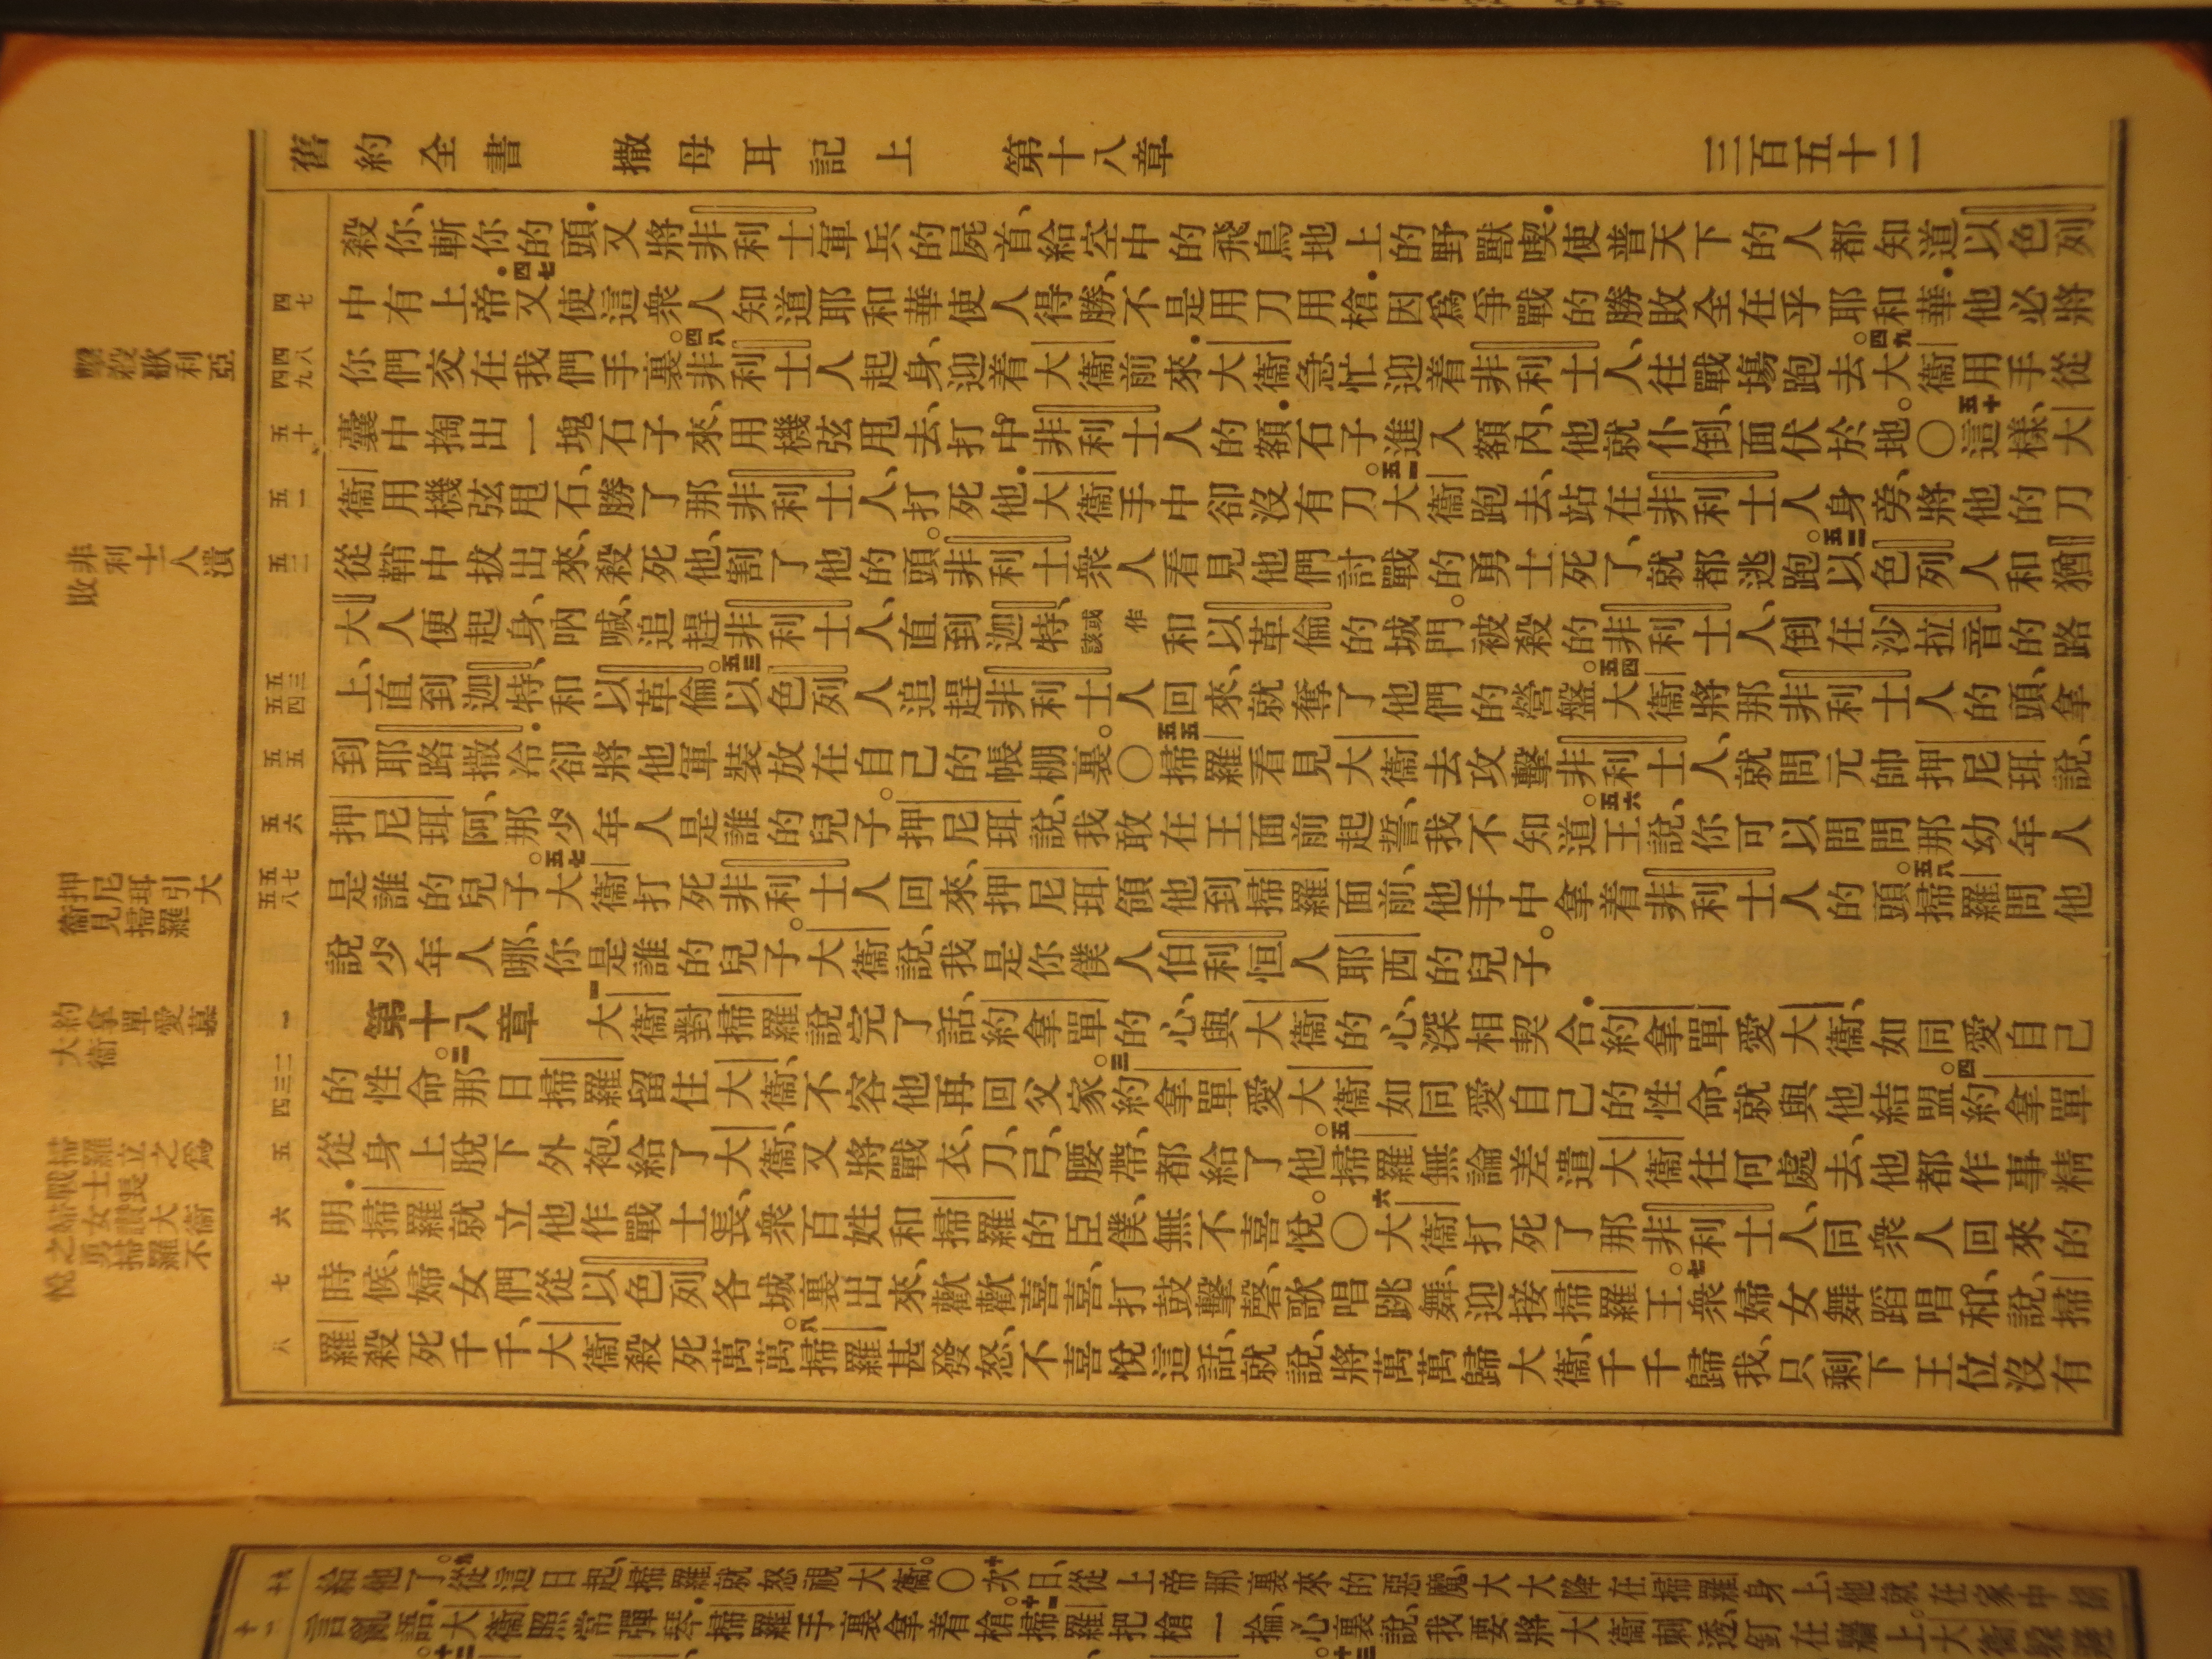 舊約全書　撒母耳記上　第十八章　三百五十二
殺你、斬你的頭．又將非利士軍兵的屍首、給空中的飛鳥地上的野獸喫．使普天下的人都知道以色列
四七
中有上帝．四七又使這衆人知道耶和華使人得勝、不是用刀用槍．因爲爭戰的勝敗全在乎耶和華．他必將
四八
四九
你們交在我們手裏。四八非利士人起身、迎着大衞前來．大衞急忙迎着非利士人、往戰塲跑去。四九大衞用手從
五十
囊中掏出一塊石子來、用機弦甩去、打中非利士人的額．石子進入額內、他就仆倒、面伏於地。〇五十這樣、大
五一
衞用機弦甩石、勝了那非利士人、打死他．大衞手中卻沒有刀。五一大衞跑去、站在非利士人身旁、將他的刀
五二
從鞘中拔出來、殺死他、割了他的頭。非利士衆人看見他們討戰的勇士死了、就都逃跑。五二以色列人和猶
大人便起身、吶喊、追趕非利士人、直到迦特、或作該和以革倫的城門。被殺的非利士人、倒在沙拉音的路
五三
五四
上、直到迦特、和以革倫。五三以色列人追趕非利士人回來、就奪了他們的營盤。五四大衞將那非利士人的頭、拿
五五
到耶路撒冷．卻將他軍裝放在自己的帳棚裏。〇五五掃羅看見大衞去攻擊非利士人、就問元帥押尼珥說、
五六
押尼珥阿、那少年人是誰的兒子。押尼珥說、我敢在王面前起誓、我不知道。五六王說、你可以問問那幼年人
五七
五八
是誰的兒子。五七大衞打死非利士人回來、押尼珥領他到掃羅面前、他手中拿着非利士人的頭。五八掃羅問他
說少年人哪、你是誰的兒子。大衞說、我是你僕人伯利恒人耶西的兒子。
一
第十八章　一大衞對掃羅說完了話、約拿單的心、與大衞的心、深相契合．約拿單愛大衞、如同愛自己
二
三
四
的性命。二那日掃羅留住大衞、不容他再回父家。三約拿單愛大衞如同愛自己的性命、就與他結盟。四約拿單
五
從身上脫下外袍、給了大衞、又將戰衣、刀、弓、腰帶、都給了他。五掃羅無論差遣大衞往何處去、他都作事精
六
明．掃羅就立他作戰士長、衆百姓和掃羅的臣僕、無不喜悅。〇六大衞打死了那非利士人、同衆人回來的
七
時候、婦女們從以色列各城裏出來、歡歡喜喜、打鼓擊磬、歌唱跳舞、迎接掃羅王。七衆婦女舞蹈唱和、說、掃
八
羅殺死千千、大衞殺死萬萬。八掃羅甚發怒、不喜悅這話、就說、將萬萬歸大衞、千千歸我、只剩下王位沒有
擊殺歌利亞
非利士人潰敗
押尼珥引大衞見掃羅
約拿單愛慕大衞
掃羅立之爲戰士長
婦女讚大衞之勇掃羅不悅
給他了。九從這日起、掃羅就怒視大衞。〇十次日、從上帝那裏來的惡魔、大大降在掃羅身上、他就在家中胡
十一
言亂語．大衞照常彈琴．掃羅手裏拿着槍。十一掃羅把槍一掄、心裏說、我要將大衞刺透、釘在牆上。大衞躲避